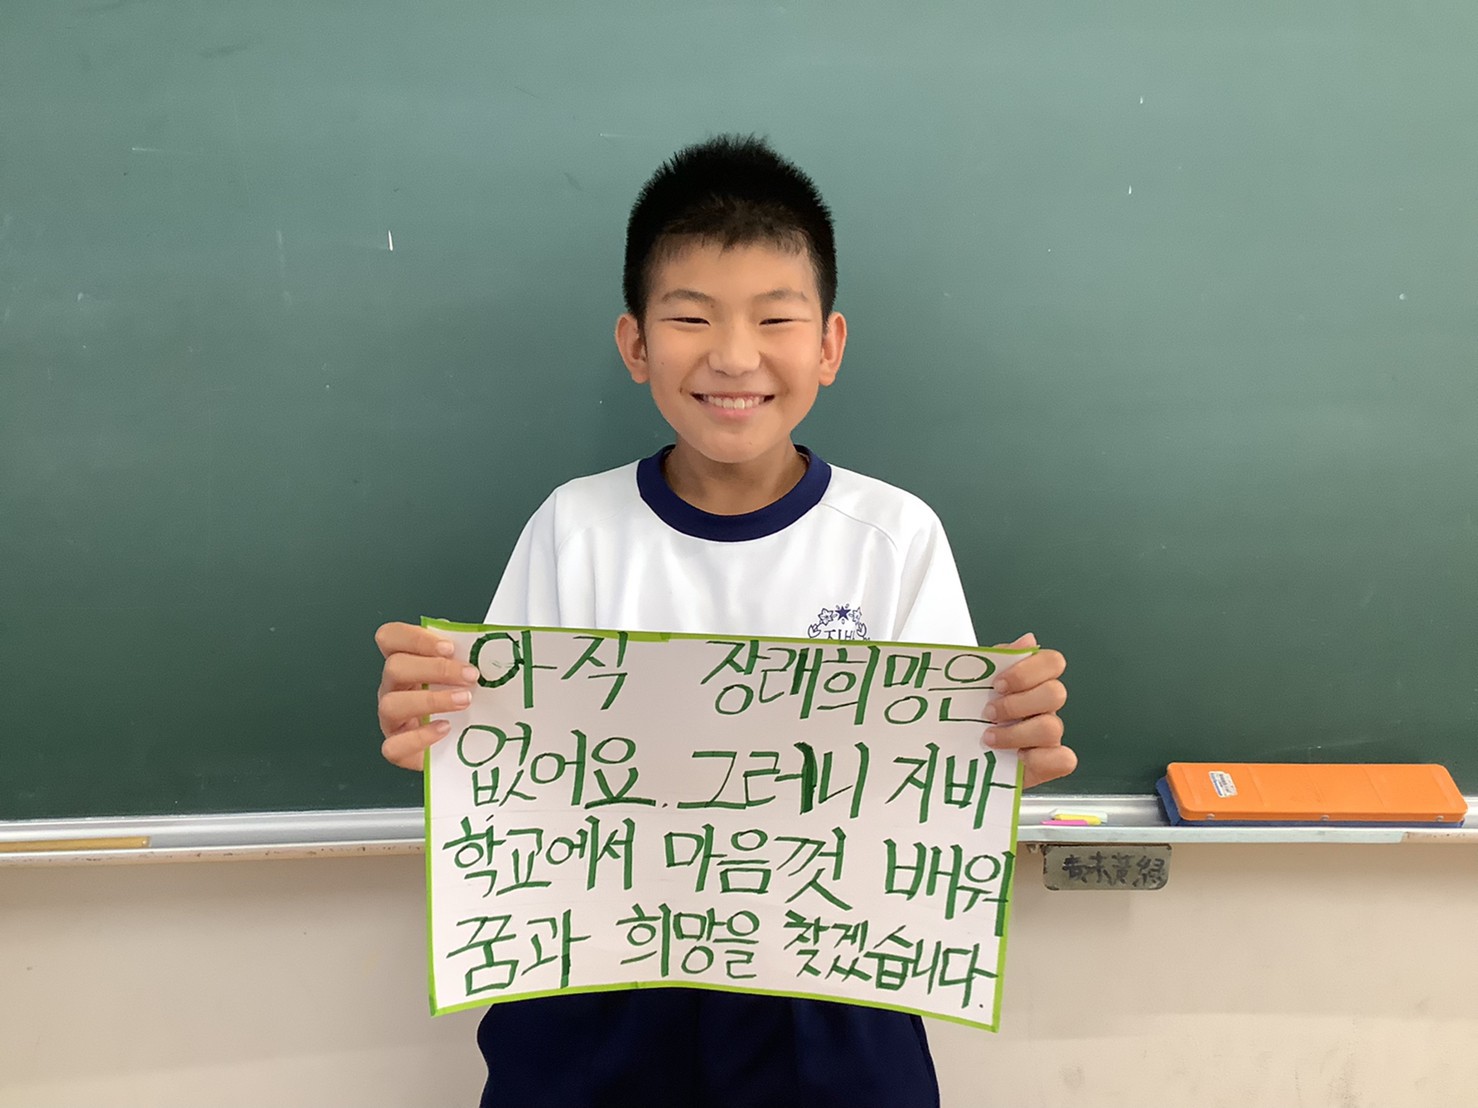 지바
아직 장래희망은
없어요. 그러니 지바
학교에서 마음껏 배워
꿈과 희망을 찾겠습니다.